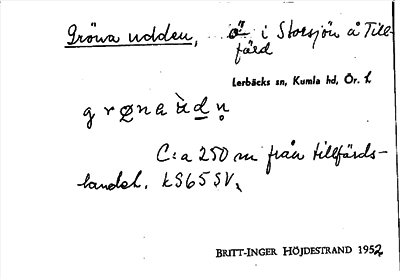 Gröna udden, ö i Storsjön å Till-
färd
Lerbäcks sn, Kumla hd, Ör. l.
grøna ùdn̥
C:a 250 m från tillfärds-
landet. kS65SV.
BRITT-INGER HÖJDESTRAND 1952